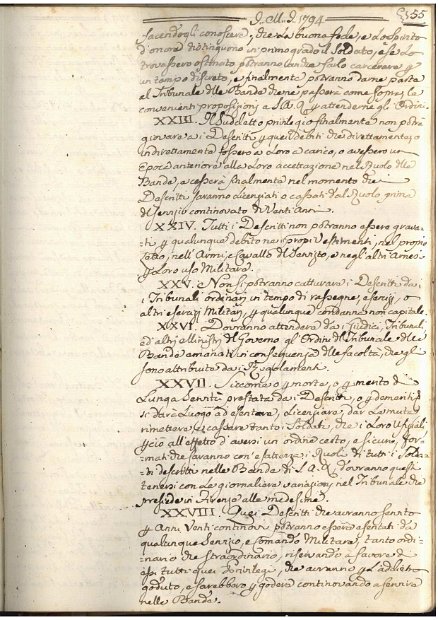 J. M. J. 1794 55
facendogli conoscere, che la buona fede, e lo Spirito
d'onore distinguono in primo grado il Soldato, e se lo
trovassero ostinato potranno anche farlo carcerare p
un tempo discreto, e finalmente potranno darne parte
al Tribunale delle Bande che ne passerà come sopra, le
convenienti proposizioni a S. A. R. p attenderne gli Ordini
XXIII. Il Suddetto privilegio finalmente non potrà
giovare a i Descritti p quei debiti che direttamente, o
indirettamente fossero a Loro carico, o avessero un
Epoca anteriore alla Loro accettazione nel Ruolo delle
Bande, e cesserà finalmente nel momento che i
Descritti saranno licenziati o cassati dal Ruolo, prima
del Servizio continovato di Venti Anni.
XXIV. Tutti i Descritti non potranno essere grava-
ti p qualunque debito nei propri vestimenti, nel proprio
Letto, nell'Armi, e Cavallo di Servizio, e negl'altri Arnesi
p Loro uso Militare.
XXV. Non si potranno catturare i Descritti da i
Tribunali ordinarj in tempo di rassegne, esercizj, o
altri servizj Militari p qualunque condanna non capitale.
XXVI. Dovranno attendere da i Giudici, Tribunali,
ed altri Ministri del Governo gl'Ordini del Tribunale delle
Bande emanati in consequenza delle facoltà, che gli
sono attribuite da i Regolamenti.
XXVII. Siccome o p morte, o p merito di
Lunga Servitù prestata da i Descritti, o p demeriti
si darà Luogo ad esentare, Licenziare, dar La muta
rimettere, e cassare tanto i Soldati, che i Loro Ufiziali,
p ciò all'effetto d'aversi un ordine certo, e sicuro, for-
mati che saranno con esattezza i Ruoli di tutti i Solda-
ti descritti nelle Bande di S. A. R. dovranno questi
tenersi con La giornaliera variazione nel Tribunale che
presiede in Firenze alle medesime.
XXVIII. Quei Descritti che avranno servito
p Anni Venti continovi potranno essere esentati da
qualunque Servizio, e comando Militare, tanto ordi-
nario che straordinario, riservando a favore di
essi tutti quei Privilegi, che avranno p l'addietro
goduto, e sarebbero p godere continovando a servire
nelle Bande.